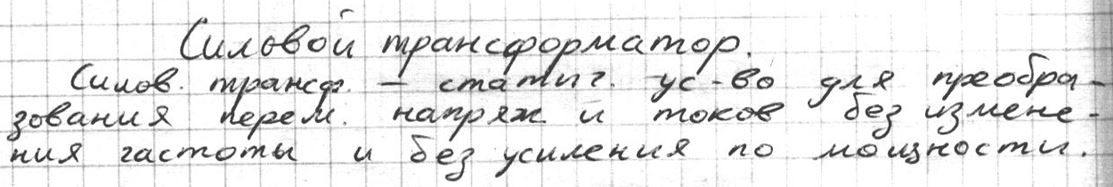 Силовой трансформатор.
Силов. трансф. – статич. ус-во для преобра-
зования перем. напряж и токов без измене-
ния частоты и без усиления по мощности.